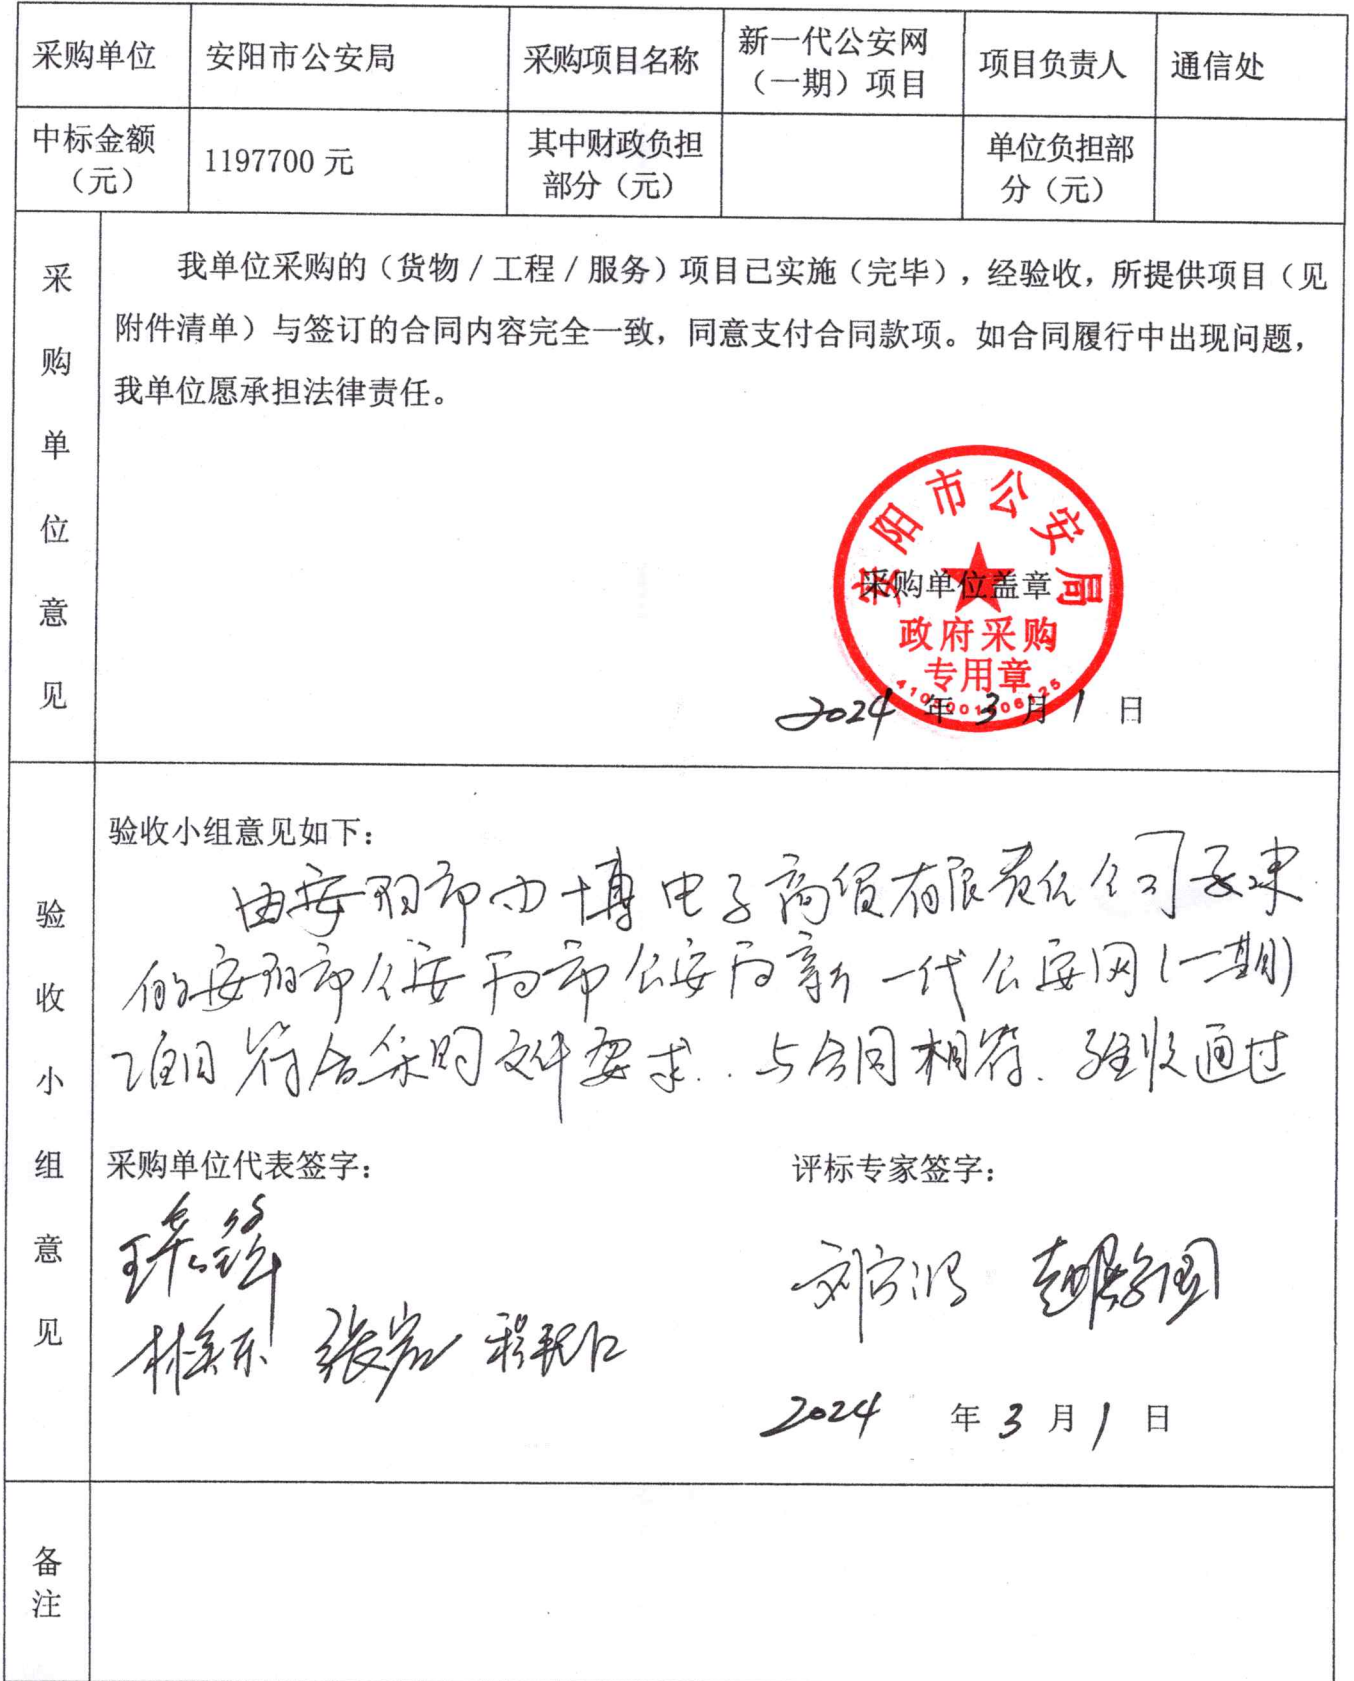 采购单位 安阳市公安局 采购项目名称 新一代公安网（一期）项目 项目负责人 通信处
中标金额（元） 1197700 元 其中财政负担部分（元） 单位负担部分（元）
采购单位意见
我单位采购的（货物／工程／服务）项目已实施（完毕），经验收，所提供项目（见
附件清单）与签订的合同内容完全一致，同意支付合同款项。如合同履行中出现问题，
我单位愿承担法律责任。
安阳市公安局
采购单位盖章
政府采购
专用章
2024 年 3 月 1 日
验收小组意见
验收小组意见如下：
由安阳市 博电子商贸有限责任公司
的安阳市公安局市公安局新一代公安网（一期）
项目符合采购文件要求．与合同相符．验收通过
采购单位代表签字： 评标专家签字：
张岩
2024 年 3 月 1 日
备注